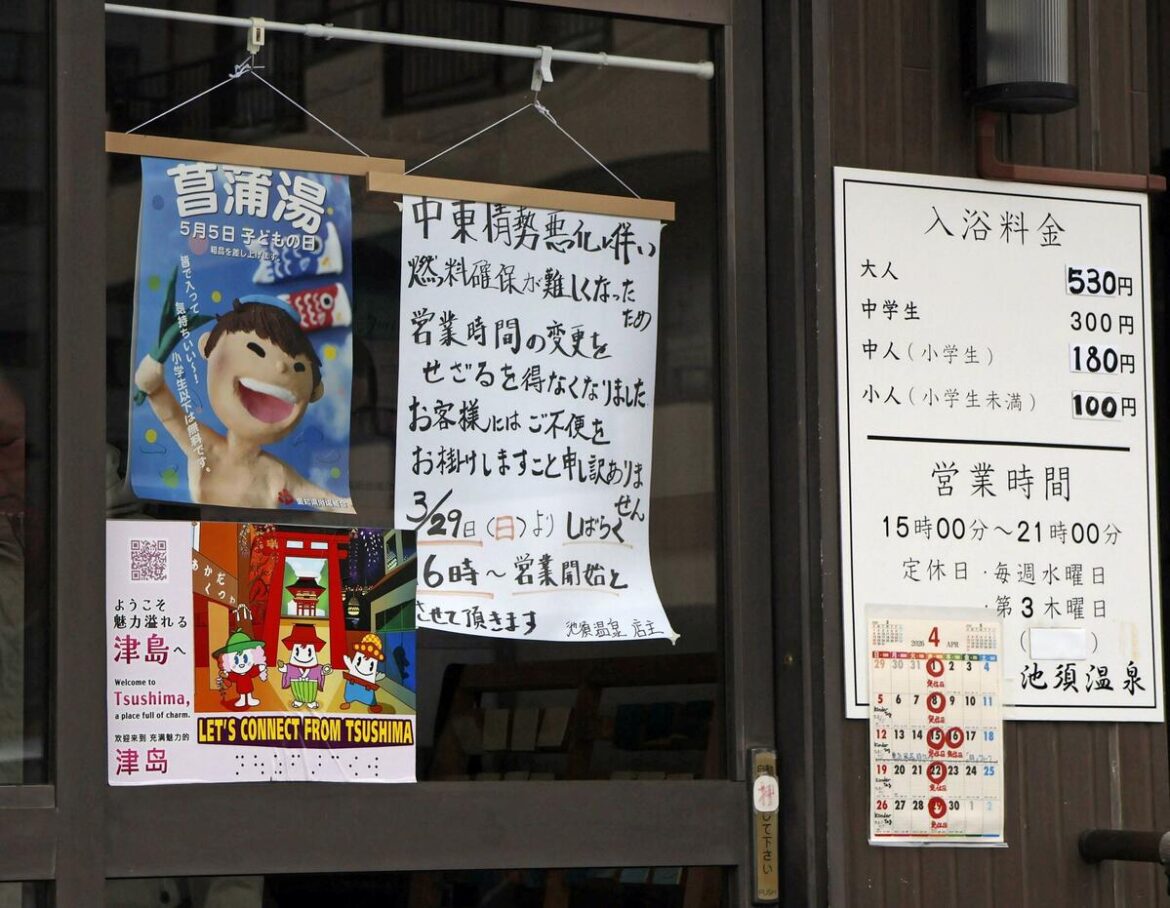 菖蒲湯
5月5日 子どもの日
粗品を差し上げます。
皆で入って
気持ちいい〜!
小学生以下は無料です。
中東情勢悪化に伴い
燃料確保が難しくなった
ため
営業時間の変更を
せざるを得なくなりました
お客様にはご不便を
お掛けしますこと申し訳ありま
せん
3/29日(日)より しばらく
16時〜営業開始と
させて頂きます
池須温泉 店主
ようこそ
魅力溢れる
津島へ
Welcome to
Tsushima,
a place full of charm.
欢迎来到 充满魅力的
津岛
あかだ
くつわ
LET'S CONNECT FROM TSUSHIMA
入浴料金
大人 530円
中学生 300円
中人(小学生) 180円
小人(小学生未満) 100円
営業時間
15時00分〜21時00分
定休日・毎週水曜日
・第3木曜日
( )
池須温泉
2026 4 APR
日 月 火 水 木 金 土
29 30 31 1 2 3 4
5 6 7 8 9 10 11
12 13 14 15 16 17 18
19 20 21 22 23 24 25
26 27 28 29 30 1 2
して下さい
PUSH